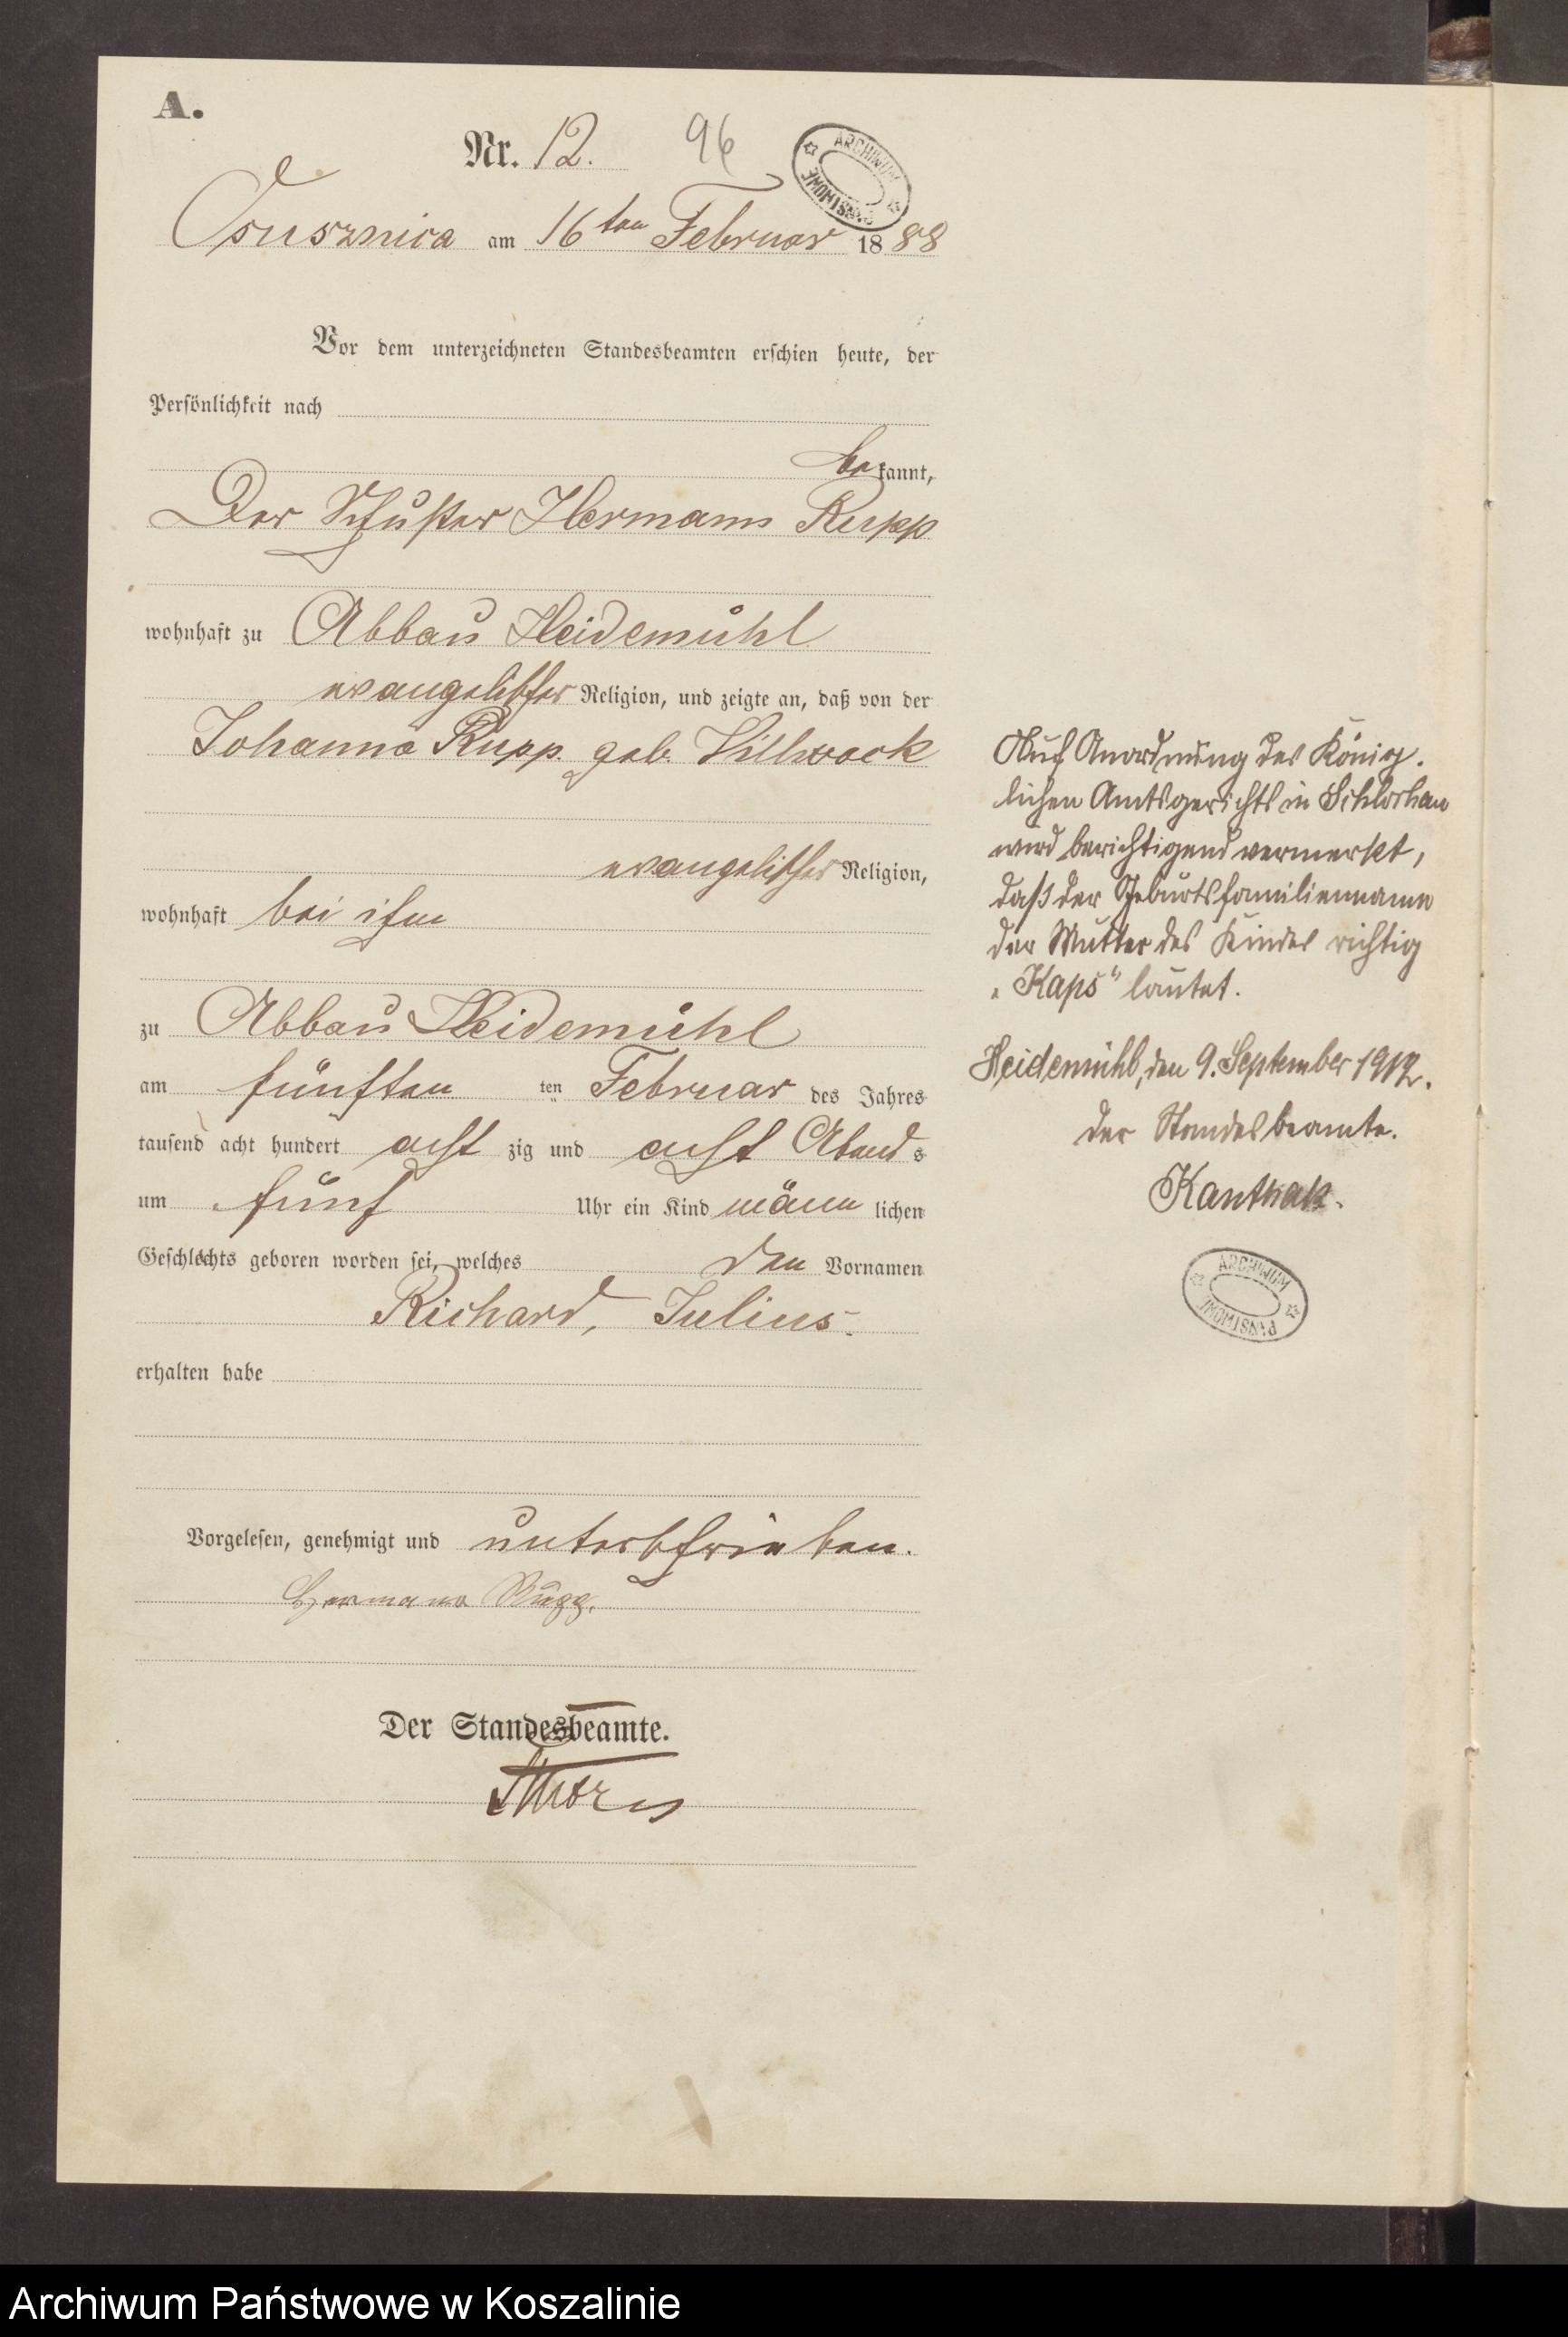 A.
Nr. 12. 96
ARCHIWUM PAŃSTWOWE
Osusznica am 16ten Februar 1888
Vor dem unterzeichneten Standesbeamten erschien heute, der
Persönlichkeit nach
bekannt,
Der Schuster Hermann Rupp
wohnhaft zu Abbau Heidemühl
evangelischer Religion, und zeigte an, daß von der
Johanna Rupp geb. Villwock
evangelischer Religion,
wohnhaft bei ihm
zu Abbau Heidemühl
am fünften ten Februar des Jahres
tausend acht hundert acht zig und acht Abends
um fünf Uhr ein Kind männlichen
Geschlechts geboren worden sei, welches den Vornamen
Richard, Julius.
erhalten habe
Vorgelesen, genehmigt und unterschrieben.
Hermann Rupp.
Der Standesbeamte.
Auf Anordnung des König.
lichen Amtsgerichts in Schlochau
wird berichtigend vermerkt,
daß der Geburtsfamilienname
der Mutter des Kindes richtig
"Kaps" lautet.
Heidemühl, den 9. September 1912.
Der Standesbeamte.
Kanthak.
ARCHIWUM PAŃSTWOWE
Archiwum Państwowe w Koszalinie